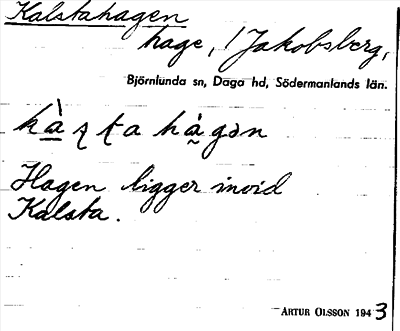 Kalstahagen
hage, / Jakobsberg,
Björnlunda sn, Daga hd, Södermanlands län.
Hagen ligger invid
Kalsta.
ARTUR OLSSON 1943